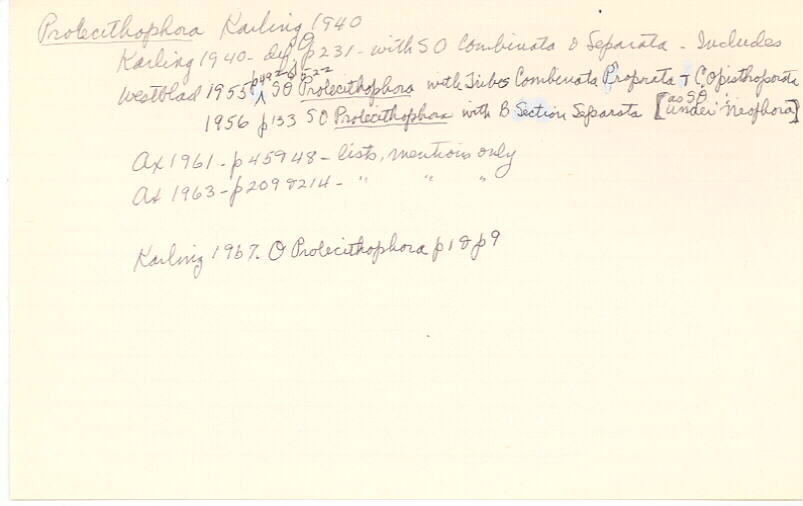 Prolecithophora Karling 1940
Karling 1940 - def O p231 - with SO Combinata & Separata - Includes
Westblad 1955 p492 & p522 SO Prolecithophora with Tribes Combinata Proprata + C Opisthoporata
1956 p133 SO Prolecithophora with B Section Separata [as SO under Neophora]
Ax 1961 - p45948 - lists, mentions only
Ax 1963 - p209&214 - " " "
Karling 1967. O Prolecithophora p1&p9